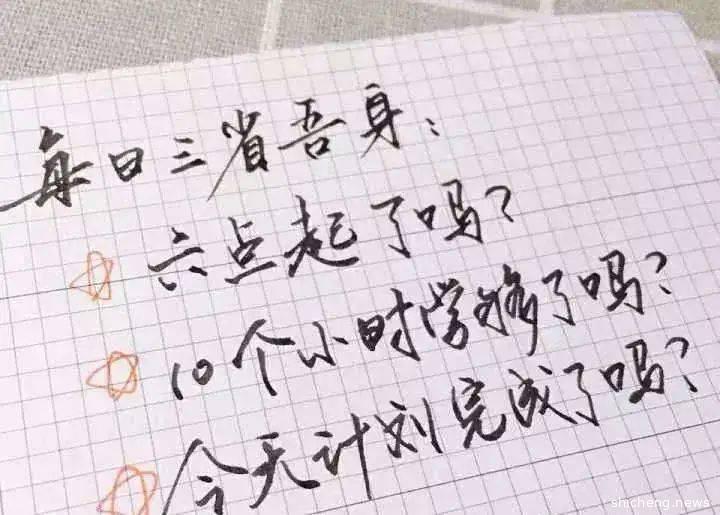 每日三省吾身:
六点起了吗?
10个小时学够了吗?
今天计划完成了吗?
shicheng.news